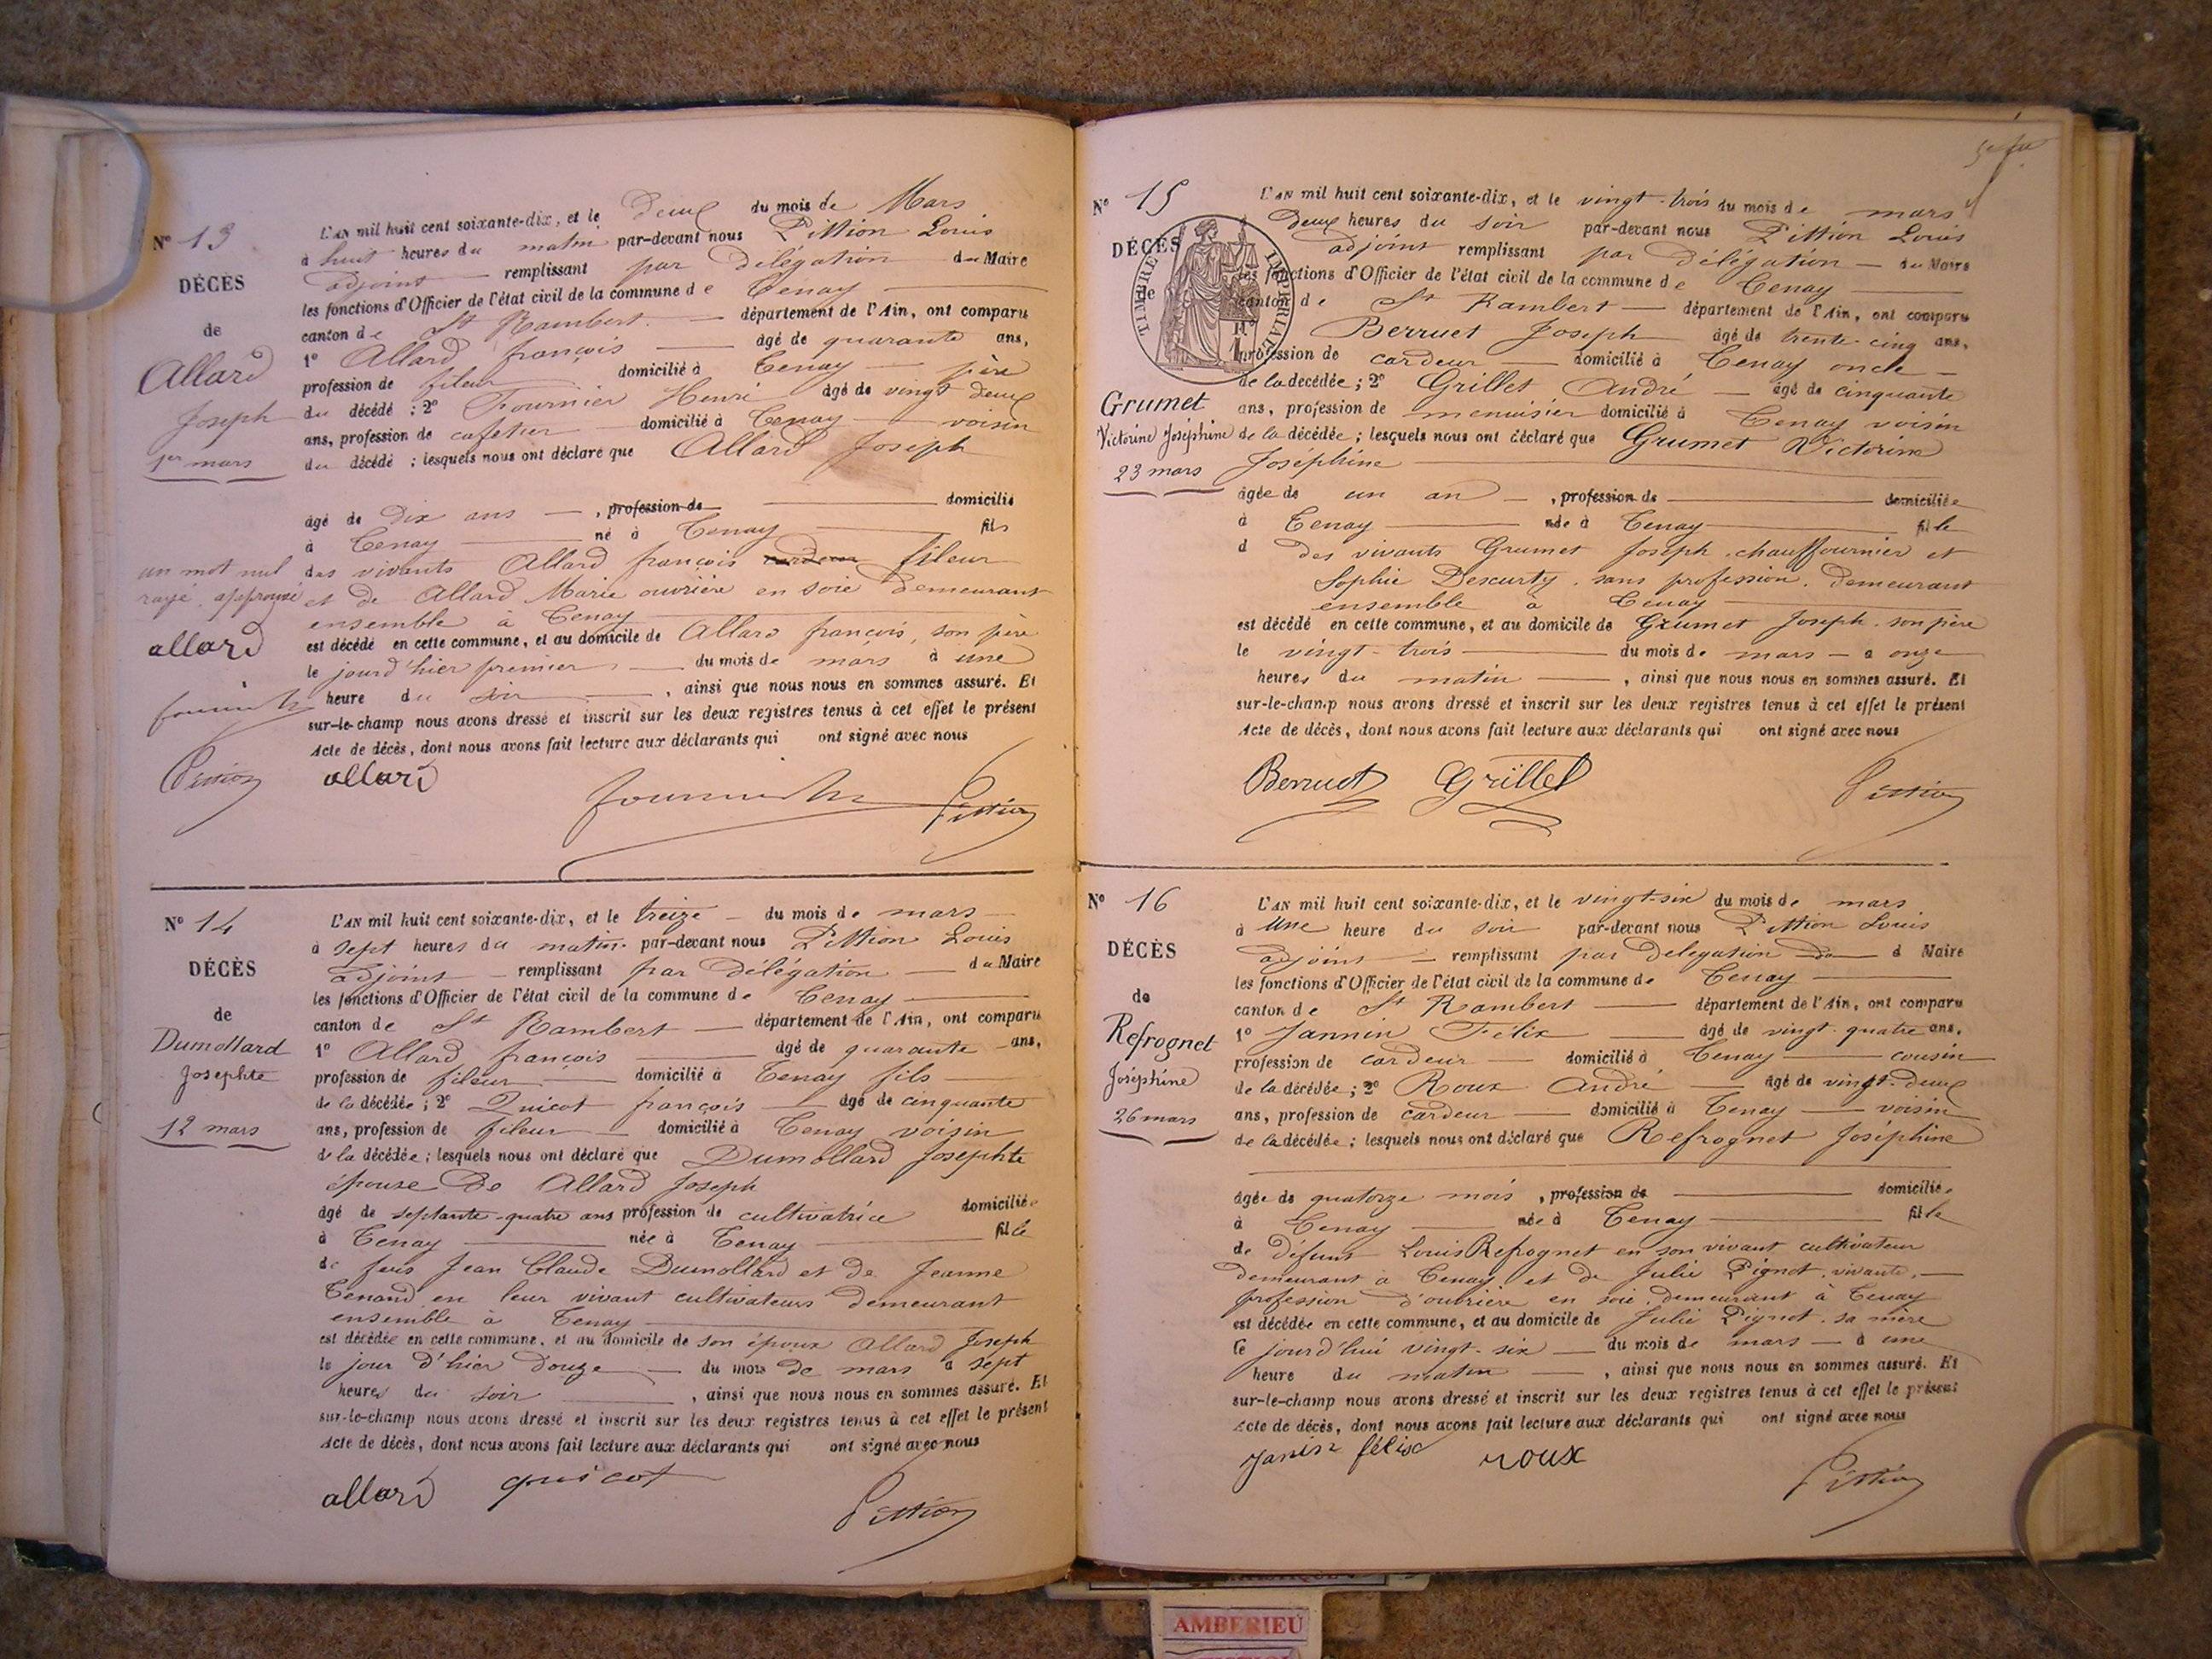 5e fu
Nº 13
DÉCÈS
de
Allard
Joseph
1er mars
L'AN mil huit cent soixante-dix, et le Deux du mois de Mars
à huit heures du matin par-devant nous Pittion Louis
adjoint remplissant par délégation du Maire
les fonctions d'Officier de l'état civil de la commune de Tenay
canton de St Rambert département de l'Ain, ont comparu
1º Allard françois âgé de quarante ans,
profession de fileur domicilié à Tenay père
du décédé ; 2º Fournier Henri âgé de vingt deux
ans, profession de cafetier domicilié à Tenay voisin
du décédé ; lesquels nous ont déclaré que Allard Joseph
âgé de dix ans , profession de domicilié
à Tenay né à Tenay fils
des vivants Allard françois cardeur fileur
et de Allard Marie ouvrière en soie demeurant
ensemble à Tenay
est décédé en cette commune, et au domicile de Allard francois, son père
le jourd'hier premier du mois de mars à une
heure du soir , ainsi que nous nous en sommes assuré. Et
sur-le-champ nous avons dressé et inscrit sur les deux registres tenus à cet effet le présent
Acte de décès, dont nous avons fait lecture aux déclarants qui ont signé avec nous
un mot nul
rayé. approuvé
allard
Pittion
allard
Pittion
Nº 14
DÉCÈS
de
Dumollard
Josephte
12 mars
L'AN mil huit cent soixante-dix, et le treize du mois de mars
à sept heures du matin par-devant nous Pittion Louis
adjoint remplissant par délégation du Maire
les fonctions d'Officier de l'état civil de la commune de Tenay
canton de St Rambert département de l'Ain, ont comparu
1º Allard françois âgé de quarante ans,
profession de fileur domicilié à Tenay fils
de la décédée ; 2º Quicot françois âgé de cinquante
ans, profession de fileur domicilié à Tenay voisin
de la décédée ; lesquels nous ont déclaré que Dumollard Josephte
épouse de Allard Joseph
âgé de septante-quatre ans profession de cultivatrice domiciliée
à Tenay née à Tenay fille
de feus Jean Claude Dumollard et de Jeanne
Tenand en leur vivant cultivateurs demeurant
ensemble à Tenay
est décédée en cette commune, et au domicile de son époux Allard Joseph
le jour d'hier douze du mois de mars à sept
heures du soir , ainsi que nous nous en sommes assuré. Et
sur-le-champ nous avons dressé et inscrit sur les deux registres tenus à cet effet le présent
Acte de décès, dont nous avons fait lecture aux déclarants qui ont signé avec nous
allard quicot
Pittion
Nº 15
DÉCÈS
de
TIMBRE IMPERIAL
Grumet
Victorine Joséphine
23 mars
L'AN mil huit cent soixante-dix, et le vingt-trois du mois de mars
Deux heures du soir par-devant nous Pittion Louis
adjoint remplissant par délégation du Maire
les fonctions d'Officier de l'état civil de la commune de Tenay
canton de St Rambert département de l'Ain, ont comparu
1º Berruet Joseph âgé de trente-cinq ans,
profession de cardeur domicilié à Tenay oncle
de la décédée ; 2º Grillet André âgé de cinquante
ans, profession de menuisier domicilié à Tenay voisin
de la décédée ; lesquels nous ont déclaré que Grumet Victorine
Joséphine
âgée de un an , profession de domiciliée
à Tenay née à Tenay fille
d des vivants Grumet Joseph, chauffournier et
Sophie Descurty, sans profession, demeurant
ensemble à Tenay
est décédé en cette commune, et au domicile de Grumet Joseph, son père
le vingt-trois du mois de mars à onze
heures du matin , ainsi que nous nous en sommes assuré. Et
sur-le-champ nous avons dressé et inscrit sur les deux registres tenus à cet effet le présent
Acte de décès, dont nous avons fait lecture aux déclarants qui ont signé avec nous
Berruet Grillet
Pittion
Nº 16
DÉCÈS
de
Refrognet
Joséphine
26 mars
L'AN mil huit cent soixante-dix, et le vingt-six du mois de mars
à une heure du soir par-devant nous Pittion Louis
adjoint remplissant par délégation du Maire
les fonctions d'Officier de l'état civil de la commune de Tenay
canton de St Rambert département de l'Ain, ont comparu
1º Jannin Félix âgé de vingt-quatre ans,
profession de cardeur domicilié à Tenay cousin
de la décédée ; 2º Roux André âgé de vingt-deux
ans, profession de cardeur domicilié à Tenay voisin
de la décédée ; lesquels nous ont déclaré que Refrognet Joséphine
âgée de quatorze mois , profession de domiciliée
à Tenay née à Tenay fille
de défunt Louis Refrognet en son vivant cultivateur
demeurant à Tenay, et de Julie Pignot, vivante,
profession d'ouvrière en soie, demeurant à Tenay
est décédée en cette commune, et au domicile de Julie Pignot, sa mère
le jourd'hui vingt-six du mois de mars à une
heure du matin , ainsi que nous nous en sommes assuré. Et
sur-le-champ nous avons dressé et inscrit sur les deux registres tenus à cet effet le présent
Acte de décès, dont nous avons fait lecture aux déclarants qui ont signé avec nous
Janin félix roux
Pittion
AMBERIEU